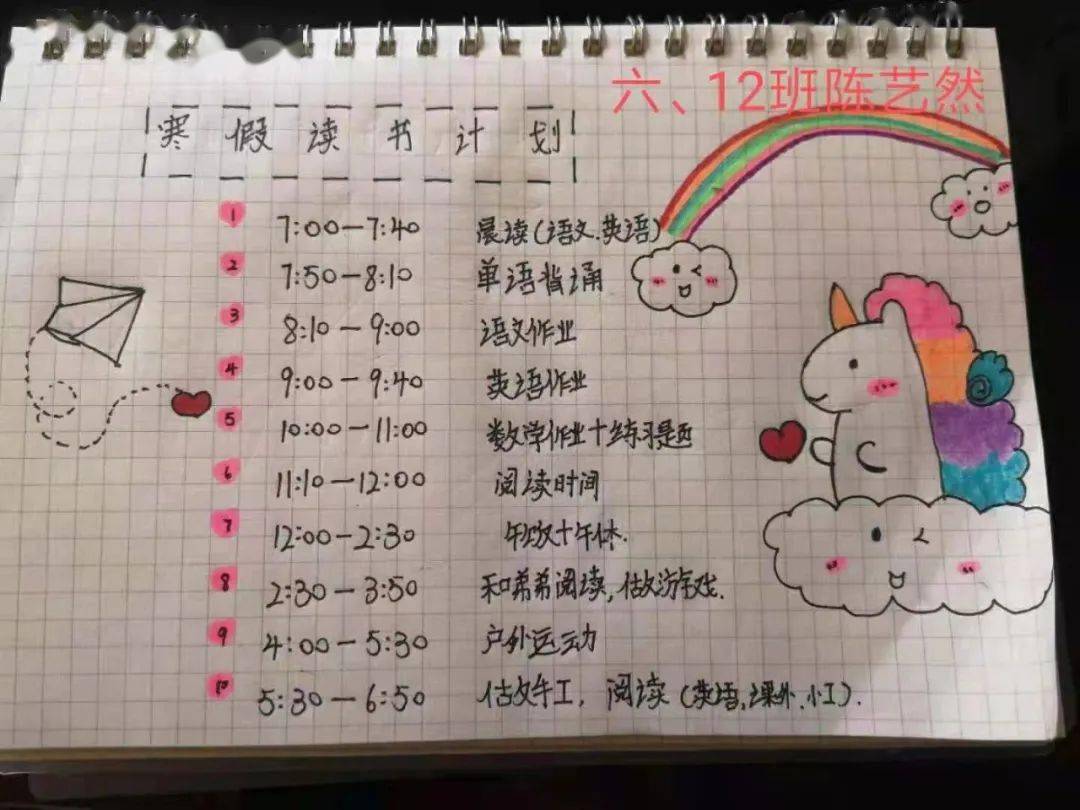 六、12班陈艺然
寒假读书计划
1 7:00—7:40 晨读(语文.英语)
2 7:50—8:10 单语背诵
3 8:10—9:00 语文作业
4 9:00—9:40 英语作业
5 10:00—11:00 数学作业+练习题
6 11:10—12:00 阅读时间
7 12:00—2:30 午饭+午休.
8 2:30—3:50 和弟弟阅读,做游戏.
9 4:00—5:30 户外运动
10 5:30—6:50 做手工,阅读(英语,课外.小工).